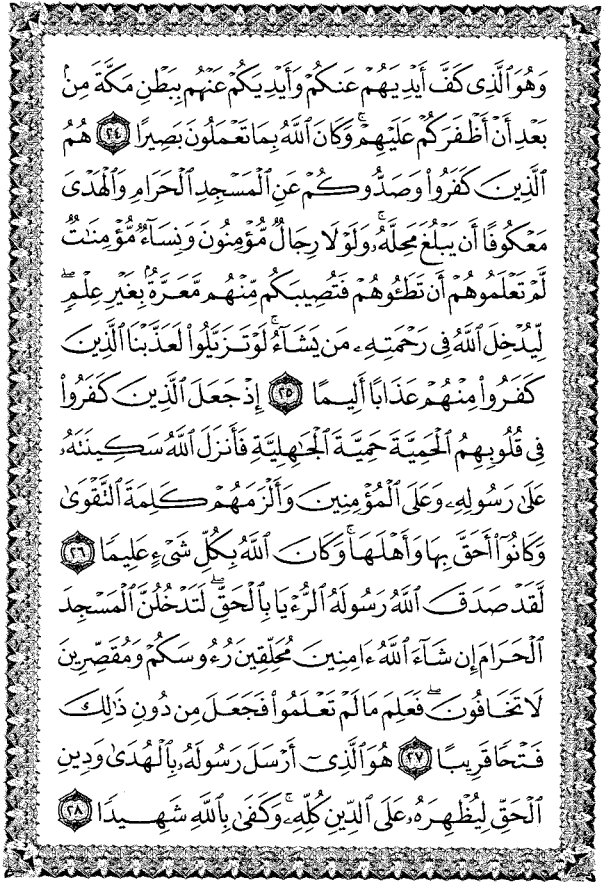 وَهُوَ ٱلَّذِى كَفَّ أَيْدِيَهُمْ عَنكُمْ وَأَيْدِيَكُمْ عَنْهُم بِبَطْنِ مَكَّةَ مِنۢ
بَعْدِ أَنْ أَظْفَرَكُمْ عَلَيْهِمْ ۚ وَكَانَ ٱللَّهُ بِمَا تَعْمَلُونَ بَصِيرًا ٢٤ هُمُ
ٱلَّذِينَ كَفَرُوا۟ وَصَدُّوكُمْ عَنِ ٱلْمَسْجِدِ ٱلْحَرَامِ وَٱلْهَدْىَ
مَعْكُوفًا أَن يَبْلُغَ مَحِلَّهُۥ ۚ وَلَوْلَا رِجَالٌ مُّؤْمِنُونَ وَنِسَآءٌ مُّؤْمِنَٰتٌ
لَّمْ تَعْلَمُوهُمْ أَن تَطَـُٔوهُمْ فَتُصِيبَكُم مِّنْهُم مَّعَرَّةٌۢ بِغَيْرِ عِلْمٍ ۖ
لِّيُدْخِلَ ٱللَّهُ فِى رَحْمَتِهِۦ مَن يَشَآءُ ۚ لَوْ تَزَيَّلُوا۟ لَعَذَّبْنَا ٱلَّذِينَ
كَفَرُوا۟ مِنْهُمْ عَذَابًا أَلِيمًا ٢٥ إِذْ جَعَلَ ٱلَّذِينَ كَفَرُوا۟
فِى قُلُوبِهِمُ ٱلْحَمِيَّةَ حَمِيَّةَ ٱلْجَٰهِلِيَّةِ فَأَنزَلَ ٱللَّهُ سَكِينَتَهُۥ
عَلَىٰ رَسُولِهِۦ وَعَلَى ٱلْمُؤْمِنِينَ وَأَلْزَمَهُمْ كَلِمَةَ ٱلتَّقْوَىٰ
وَكَانُوٓا۟ أَحَقَّ بِهَا وَأَهْلَهَا ۚ وَكَانَ ٱللَّهُ بِكُلِّ شَىْءٍ عَلِيمًا ٢٦
لَّقَدْ صَدَقَ ٱللَّهُ رَسُولَهُ ٱلرُّءْيَا بِٱلْحَقِّ ۖ لَتَدْخُلُنَّ ٱلْمَسْجِدَ
ٱلْحَرَامَ إِن شَآءَ ٱللَّهُ ءَامِنِينَ مُحَلِّقِينَ رُءُوسَكُمْ وَمُقَصِّرِينَ
لَا تَخَافُونَ ۖ فَعَلِمَ مَا لَمْ تَعْلَمُوا۟ فَجَعَلَ مِن دُونِ ذَٰلِكَ
فَتْحًا قَرِيبًا ٢٧ هُوَ ٱلَّذِىٓ أَرْسَلَ رَسُولَهُۥ بِٱلْهُدَىٰ وَدِينِ
ٱلْحَقِّ لِيُظْهِرَهُۥ عَلَى ٱلدِّينِ كُلِّهِۦ ۚ وَكَفَىٰ بِٱللَّهِ شَهِيدًا ٢٨